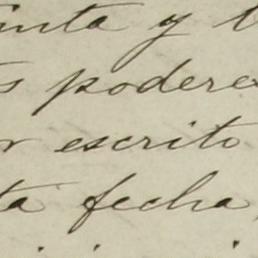 inta y t
s podere
r escrito
ta fecha,